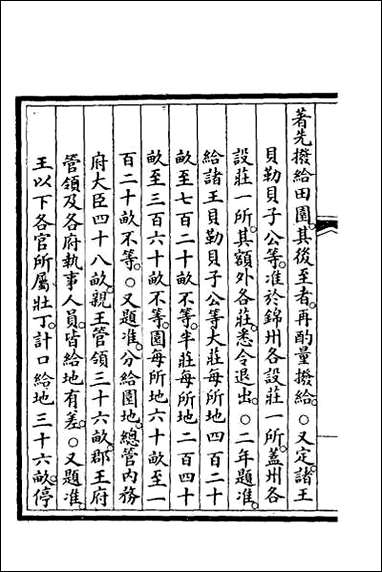 著先撥給田園。其後至者。再酌量撥給。○又定。諸王
貝勒貝子公等。准於錦州各設莊一所。蓋州各
設莊一所。其額外各莊。悉令退出。○二年題准。
給諸王貝勒貝子公等大莊每所地四百二十
畝至七百二十畝不等。半莊每所地二百四十
畝至三百六十畝不等。園每所地六十畝至一
百二十畝不等。○又題准。分給園地。總管內務
府大臣四十八畝。親王管領三十六畝。郡王府
管領及各府執事人員。皆給地有差。○又題准。
王以下各官所屬壯丁。計口給地三十六畝。停